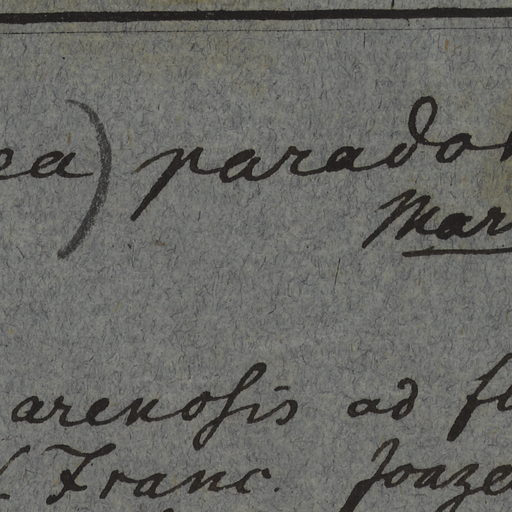 ea) parado
Mar
arenosis ad fl
Franc. Joaze